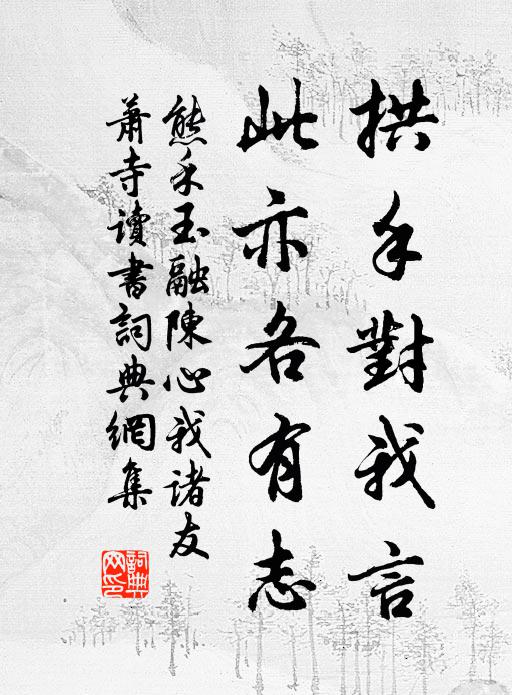 拱手對我言
此亦各有志
熊禾玉融陳心我諸友
蕭寺讀書詞典網集
詞典網印